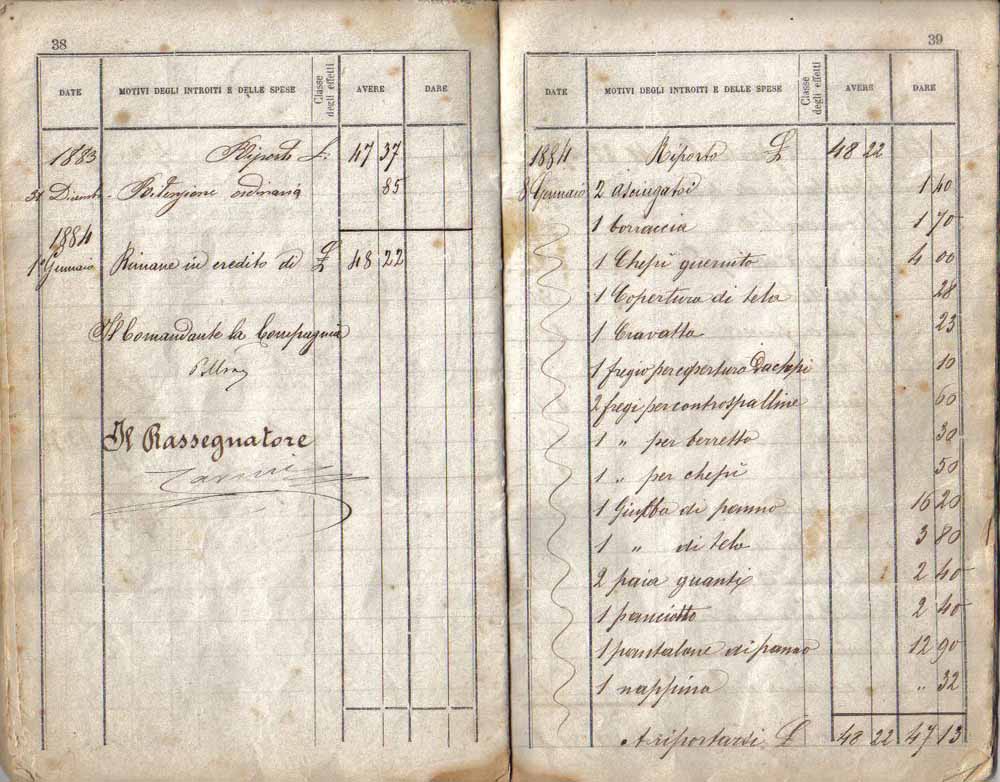 38
DATE MOTIVI DEGLI INTROITI E DELLE SPESE Classe degli effetti AVERE DARE
1883 Riporto £ 47 37
31 Dicembre Ritenzione ordinaria 85
1884
1° Gennaio Rimane in credito di £ 48 22
Il Comandante la Compagnia
Il Rassegnatore
39
DATE MOTIVI DEGLI INTROITI E DELLE SPESE Classe degli effetti AVERE DARE
1884 Riporto £ 48 22
8 Gennaio 2 asciugatoi 1 40
1 borraccia 1 70
1 Chepì guernito 4 00
1 Copertura di tela 28
1 Cravatta 23
1 fregio per copertura da chepì 10
2 fregi per controspalline 60
1 " per berretto 30
1 " per chepì 50
1 Giubba di panno 16 20
1 " di tela 3 80
2 paia guanti 2 40
1 panciotto 2 40
1 pantalone di panno 12 90
1 nappina " 32
A riportarsi £ 48 22 47 13